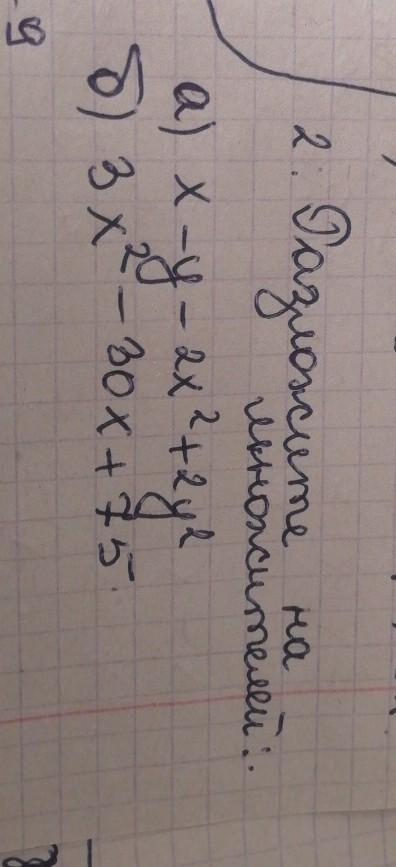 2. Разложите на
множителей:
а) x - y - 2x² + 2y²
б) 3x² - 30x + 75.